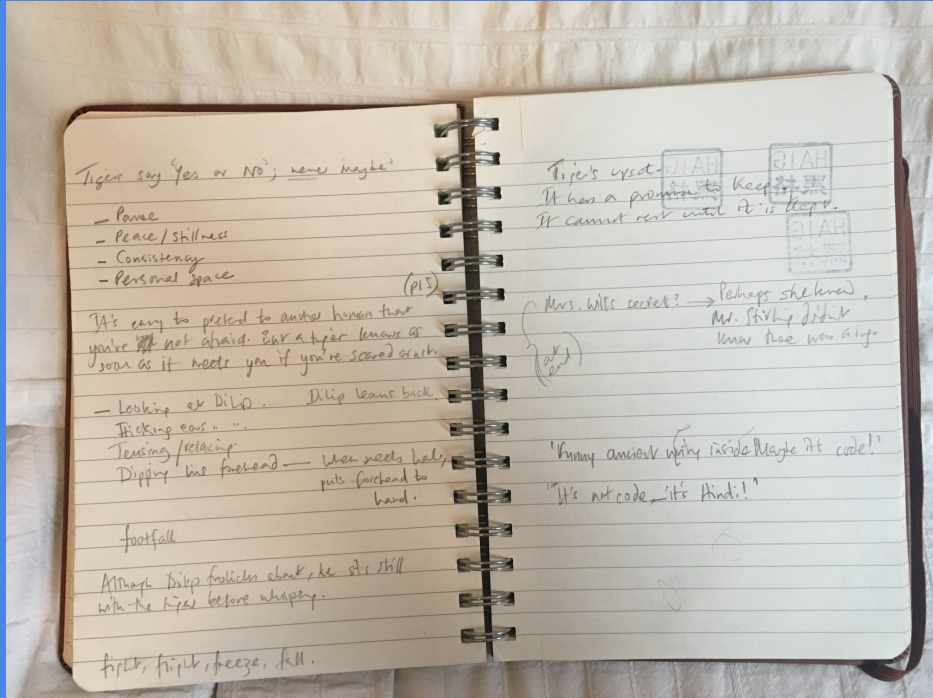 Tigers say 'Yes or No'; never maybe'
– Pause
– Peace / stillness
– Consistency
– Personal space
(p15)
It's easy to pretend to another human that
you're not afraid. But a tiger knows as
soon as it meets you if you're scared or not.
– Looking at Dilip. Dilip leans back.
Flicking ears " "
Tensing / relaxing.
Dipping his forehead — when needs help,
puts forehead to
hand.
footfall
Although Dilip frolicks about, he sits still
with the tiger before whisping.
fight, flight, freeze, fall.
Tiger's upset.
It has a promise to keep.
It cannot rest until it is kept.
HAIG
HAIG
HAIG
Mrs. Will's secret? → Perhaps she knew,
Mr. didn't
know there was a
(at
end)
"Funny ancient writing inside. Maybe it's code!"
"It's not code – it's Hindi!"